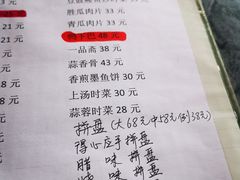 胜瓜肉片 33 元
青瓜肉片 33 元
鸭下巴 48 元
一品斋 38 元
蒜香骨 43 元
香煎墨鱼饼 30 元
上汤时菜 30 元
蒜蓉时菜 28 元
拼盘(大68元中48元例38元)
得心应手拼盘
腊味拼盘
味拼盘